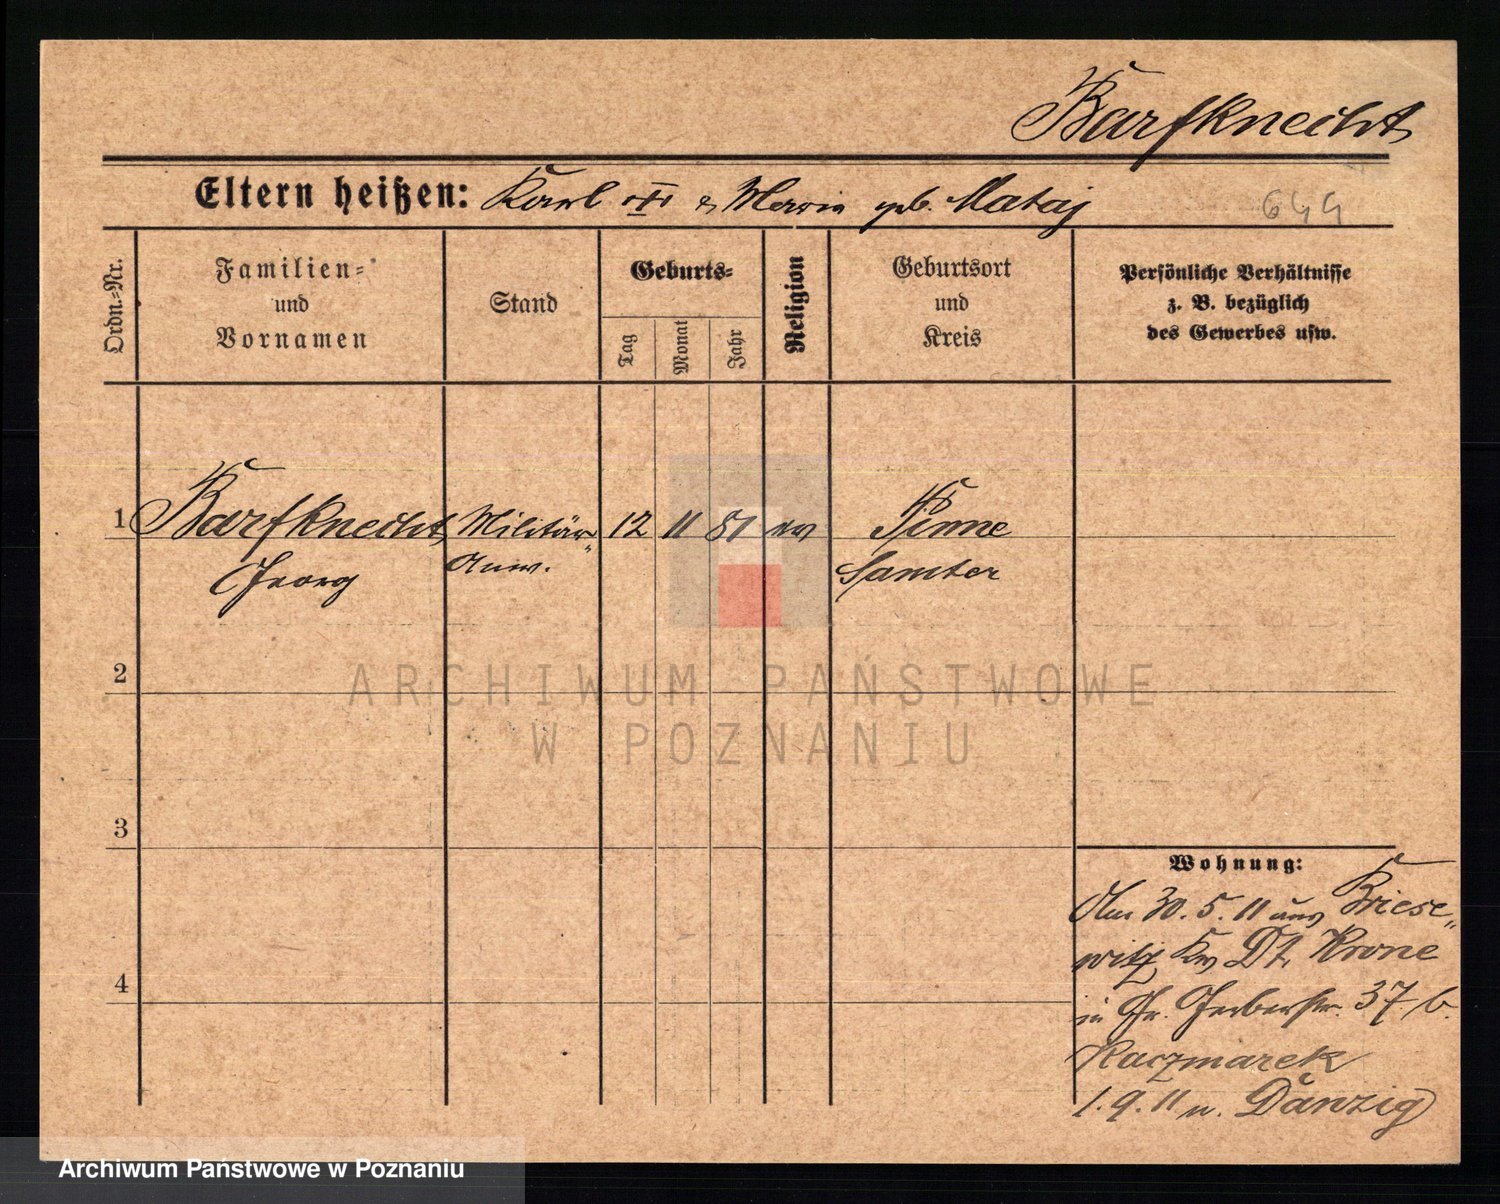 Barfknecht
Eltern heißen: Karl & Maria geb. Mataj
644
Ordn.-Nr.
Familien-
und
Vornamen
Stand
Geburts-
Tag
Monat
Jahr
Religion
Geburtsort
und
Kreis
Persönliche Verhältnisse
z. B. bezüglich
des Gewerbes usw.
1 Barfknecht Militär- 12 11 81 ev Pinne
Georg Anw. Samter
2
ARCHIWUM PAŃSTWOWE
W POZNANIU
3
4
Wohnung:
Am 30. 5. 11 aus Briese-
witz Kr Dt. Krone
in Gr. Gerberstr. 37 b.
Kaczmarek
1. 9. 11 n. Danzig
Archiwum Państwowe w Poznaniu